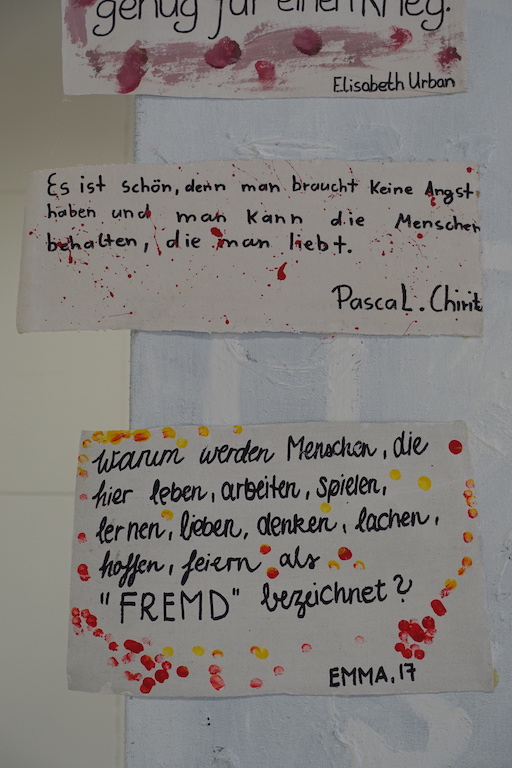 genug für einen Krieg.
Elisabeth Urban
Es ist schön, denn man braucht keine Angst
haben und man kann die Menschen
behalten, die man liebt.
Pascal. Chirit
Warum werden Menschen, die
hier leben, arbeiten, spielen,
lernen, lieben, denken, lachen,
hoffen, feiern als
"FREMD" bezeichnet?
EMMA, 17